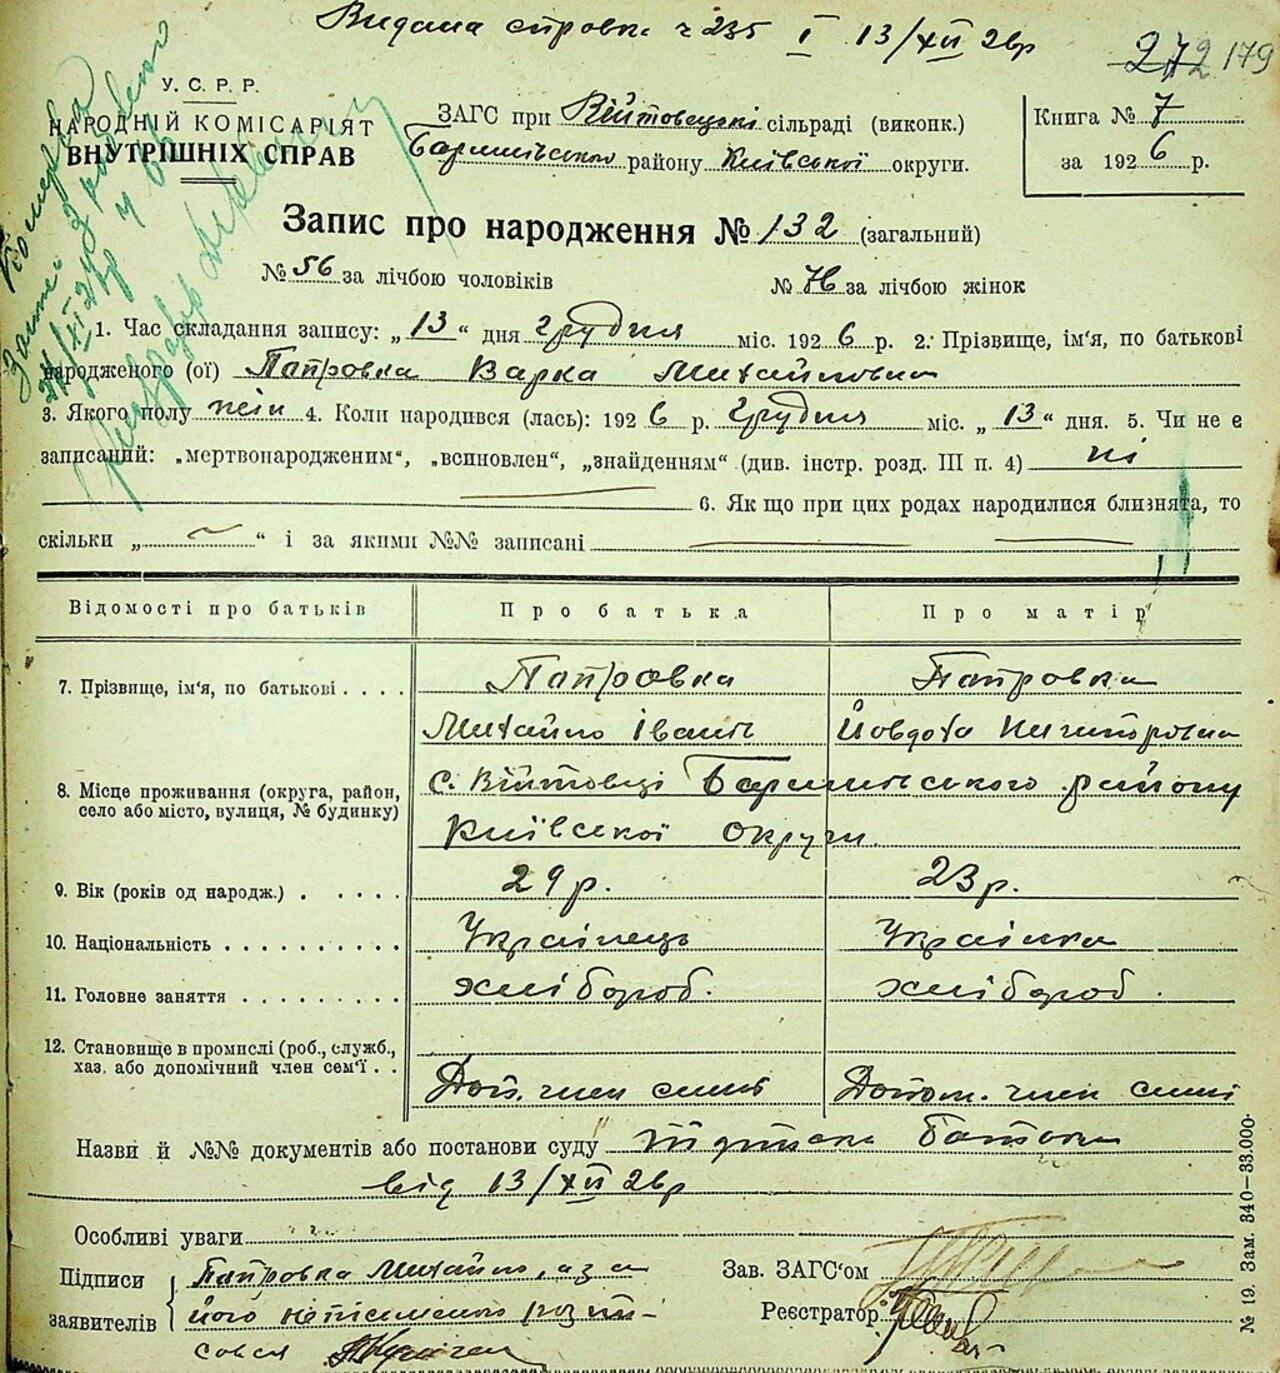 Видана справка ч 235 І 13/XII 26р
272 179
У. С. Р. Р.
НАРОДНІЙ КОМІСАРІЯТ
ВНУТРІШНІХ СПРАВ
ЗАГС при Війтовецькі сільраді (виконк.)
Баришівського району Київської округи.
Книга № 7
за 1926 р.
Запис про народження № 132 (загальний)
№ 56 за лічбою чоловіків
№ 76 за лічбою жінок
1. Час складання запису: „13“ дня грудня міс. 1926 р. 2. Прізвище, ім'я, по батькові
народженого (ої) Патровка Варка Михайловна
3. Якого полу жін 4. Коли народився (лась): 1926 р. грудня міс. „13“ дня. 5. Чи не є
записаний: „мертвонародженим“, „всиновлен“, „знайденням“ (див. інстр. розд. III п. 4) ні
6. Як що при цих родах народилися близнята, то
скільки „ “ і за якими №№ записані
Відомості про батьків Про батька Про матір
7. Прізвище, ім'я, по батькові . . . . Патровка Патровка
Михайло Іванів Йовдоха Ничипоровна
8. Місце проживання (округа, район, село або місто, вулиця, № будинку) с. Війтовці Баришівського району
Київської округи.
9. Вік (років од народж.) . . . . . 29 р. 23 р.
10. Національність . . . . . . . . . . Українець Українка
11. Головне заняття . . . . . . . . . хлібороб. хлібороб.
12. Становище в промислі (роб., служб.,
хаз. або допомічний член сем'ї . .
Доп. член симї Допом. член симї
Назви й №№ документів або постанови суду батька
від 13/XII 26р
Особливі уваги
Підписи заявителів Патровка Михайло, а за
його неписьменого розпи-
сався
Зав. ЗАГС'ом
Реєстратор:
№ 19. Зам. 340—33.000.